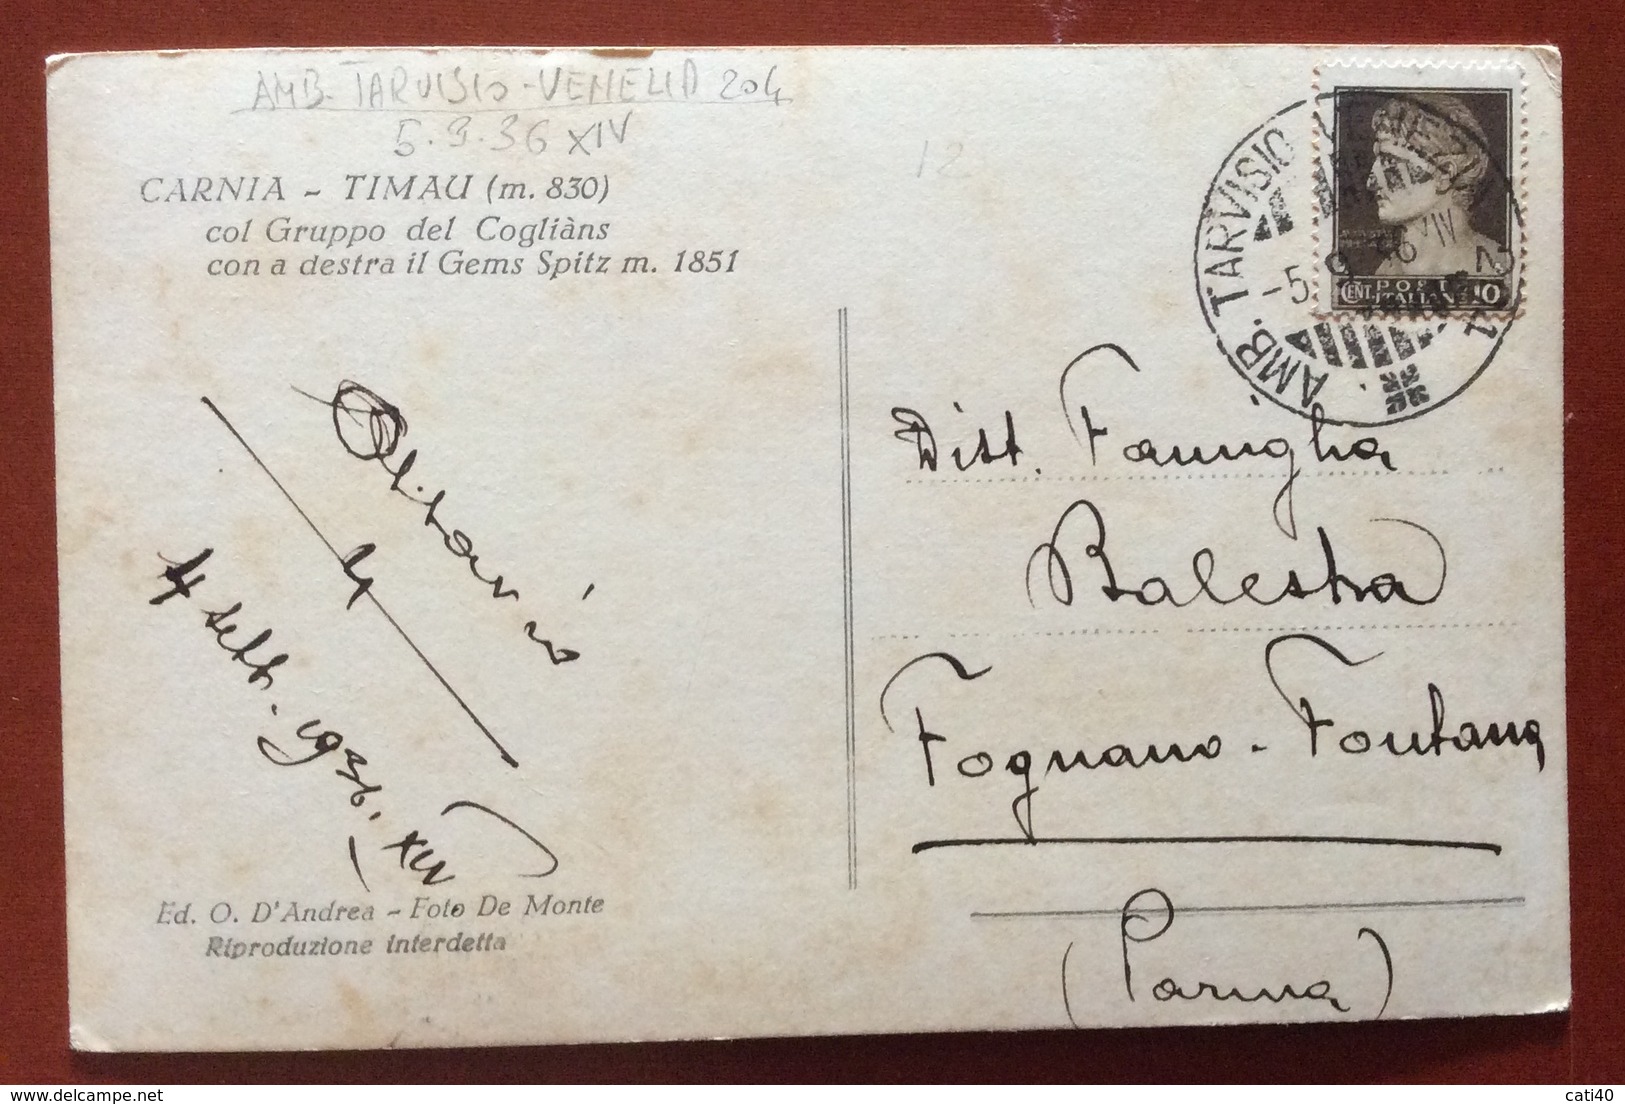 AMB. TARVISIO - VENEZIA 204
5.9.36 XIV
CARNIA - TIMAU (m. 830)
col Gruppo del Cogliàns
con a destra il Gems Spitz m. 1851
Ottavio
4 sett. 1936. XIV
Ed. O. D'Andrea - Foto De Monte
Riproduzione interdetta
12
AMB. TARVISIO VENEZIA
-5.9.36 XIV
CENT. POSTE ITALIANE 10
Dist. Famiglia
Balestra
Fognano - Fontana
(Parma)
cati40